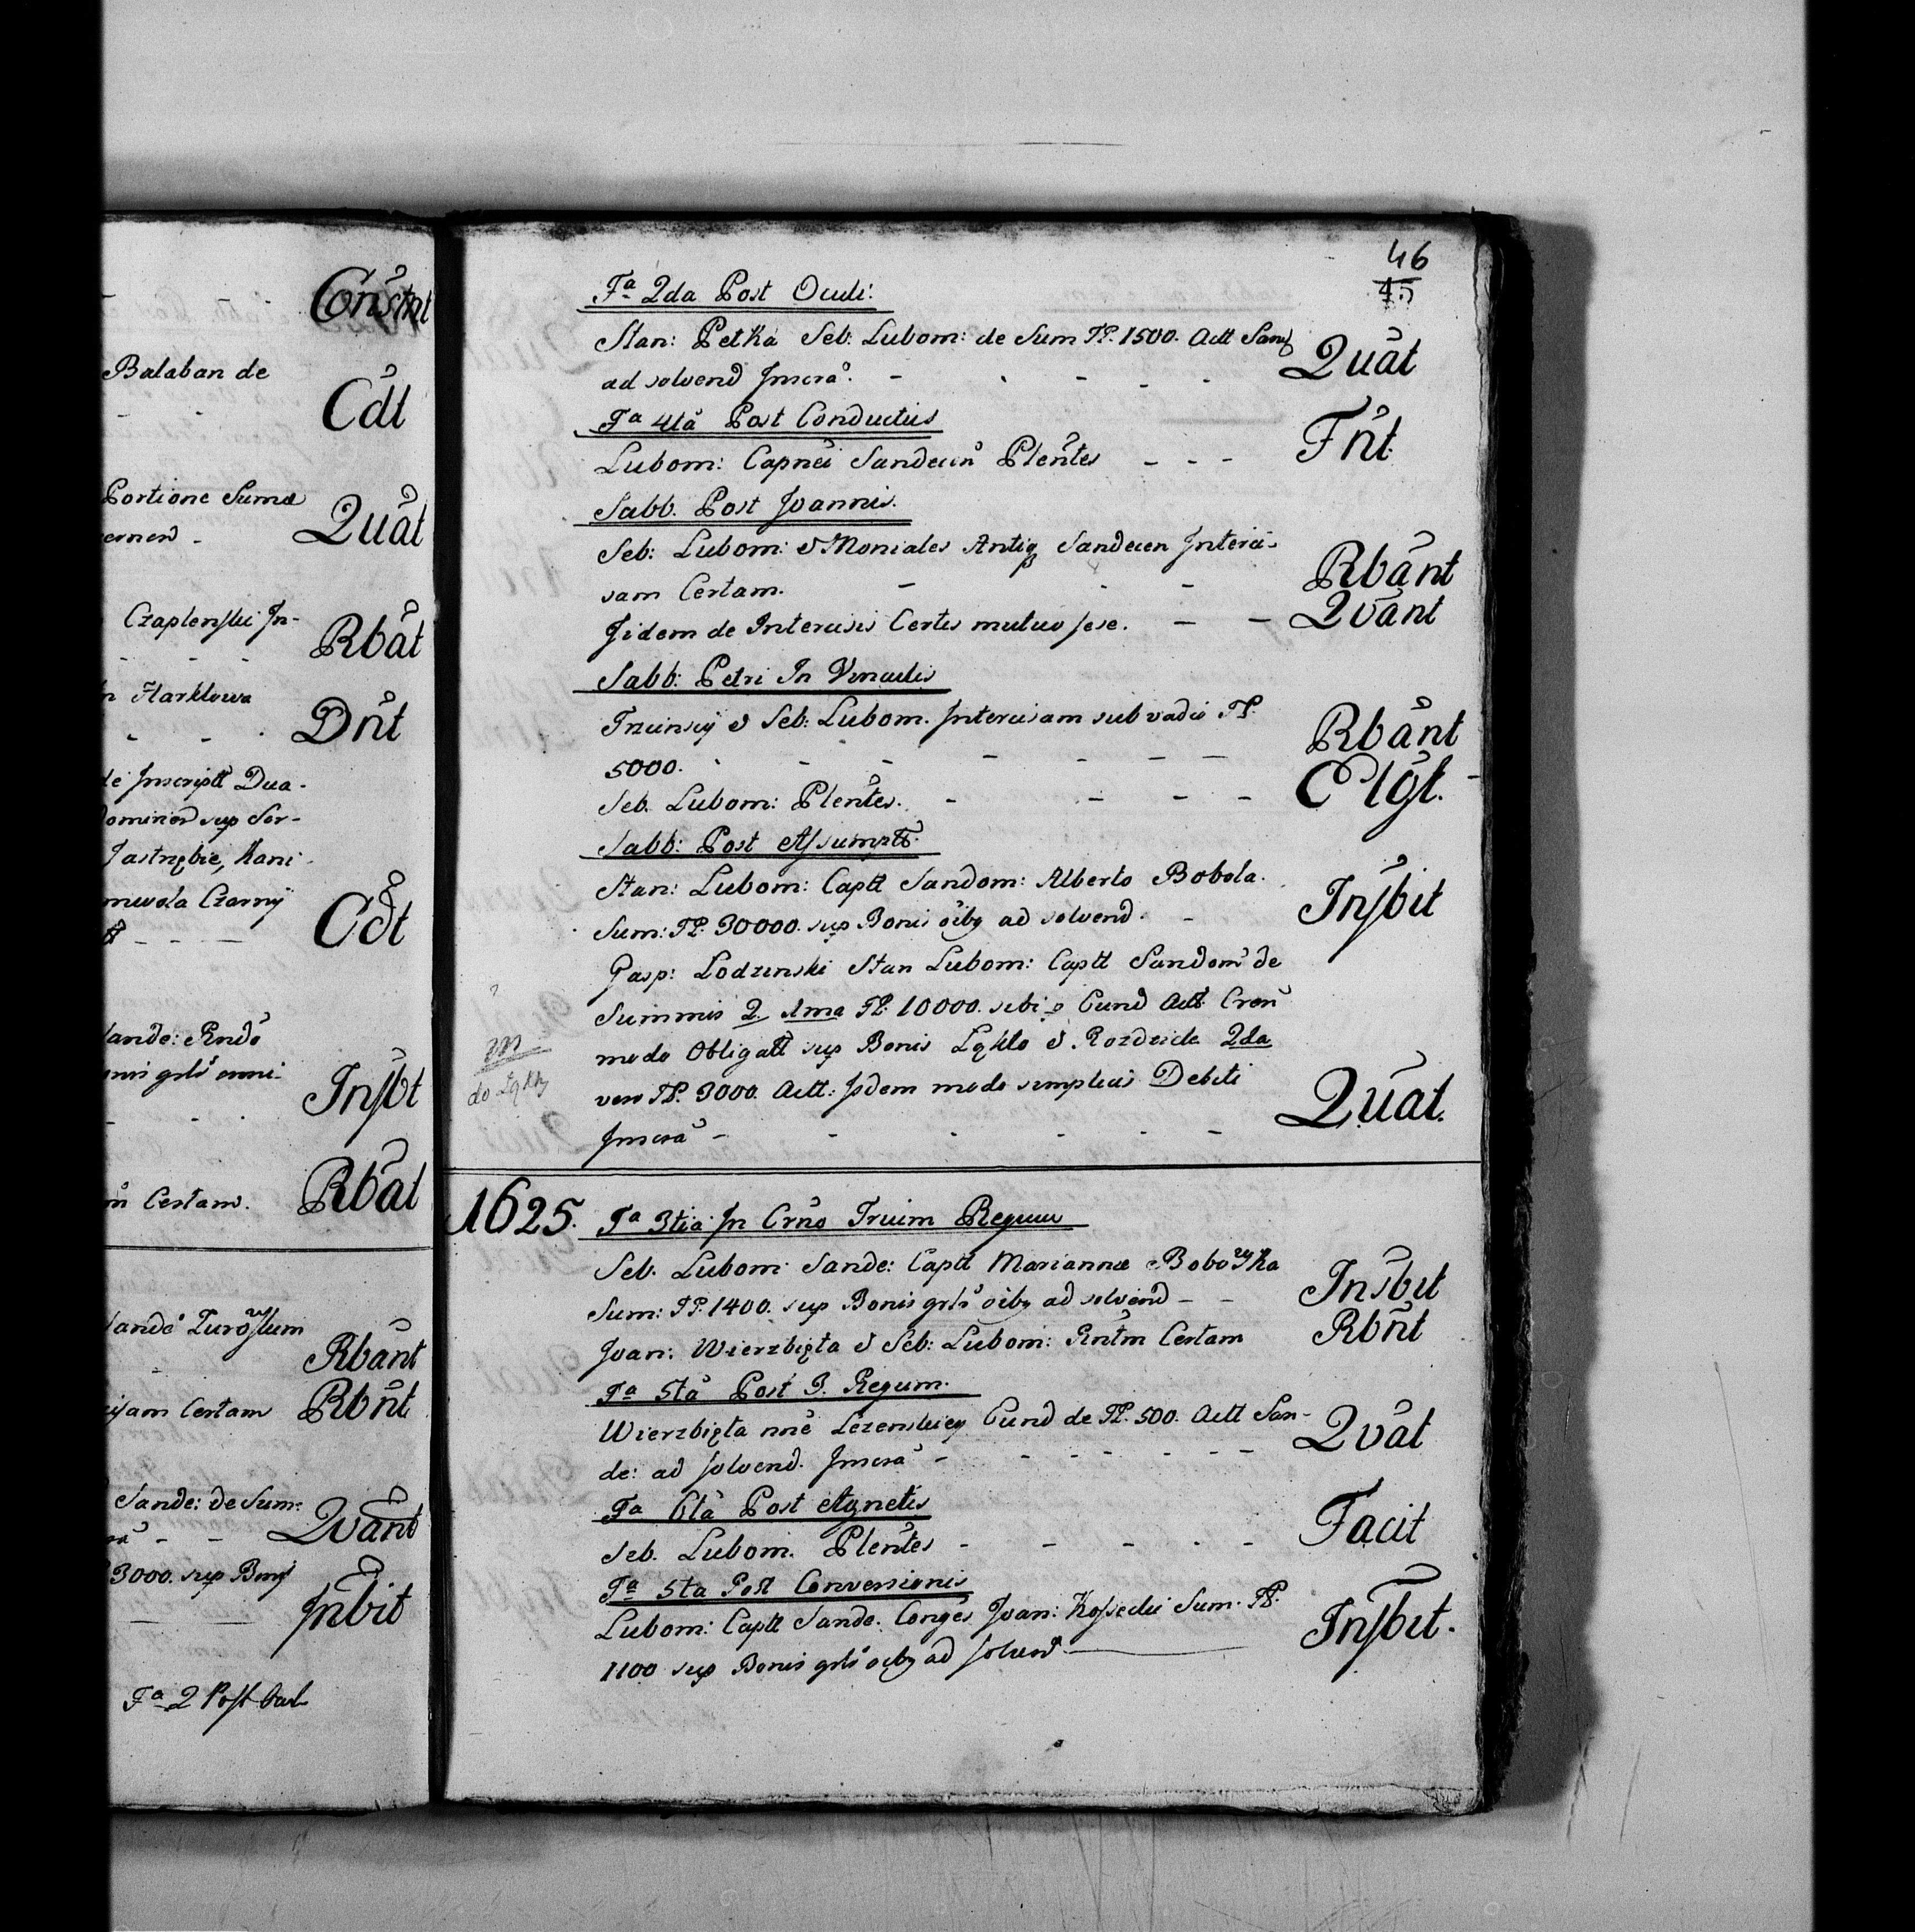 Constnt
Balaban de
Cdt
Portione Sumæ
Quat
ernend -
Czaplenskii In-
Rbat
in Harklowa
Dnt
de Inscriptt Dua-
Jastrzębie, Kani-
Czarny
Cdt
Sande: Rndo
Insbt
m Certam.
Rbat
Rbant
Certam Rbnt
Sande: de Sum:
Qvant
3000. sup Bonis
Inbit
Fa 2 Post
46
45
Fa 2da Post Oculi:
Stan: Petka Seb: Lubom: de Sum TP. 1500. Actt Sand
Quat
ad solvend Inscra. -
Fa 4ta Post Conductus
Lubom: Capnei Sandecen Plentes - - -
Fnt
Sabb. Post Joannis.
Seb: Lubom: & Moniales Antiq Sandecen Interci-
sam Certam. - - -
Rbant
Jidem de Intercisis Certis mutuo sese. - -
Qvant
Sabb: Petri In Vinculis
Trzinscy & Seb: Lubom. Intercisam sub vadio TP.
Rbant
5000. - - - - - -
Seb. Lubom: Plentes. - - - -
Elgt.
Sabb: Post Assumptt.
Stan: Lubom: Captt Sandom: Alberto Bobola.
Sum: TP. 30000. sup Bonis oibq ad solvend. -
Insbit
Gasp: Lodzinski Stan Lubom: Captt Sandom de
Summis 2. 1ma TP. 10000. sibi p Eund Actt Cren
modo Obligatt sup Bonis Łąkto & Rozdziele 2da
m
do Łąkty
vero TP. 3000. Actt: Ipdem modo simplicis Debiti
Quat.
Inscra - - - - - -
1625. Fa 3tia In Crno Trium Regum
Seb. Lubom: Sande: Captt Mariannæ Bobowka
Insbit
Sum: TP. 1400. sup Bonis grls oibq ad solvend - -
Joan: Wierzbięta & Seb: Lubom: Rntm Certam
Rbnt
Fa 5ta Post 3. Regum.
Wierzbięta nne Eund de TP. 500. Actt San-
Qvat
de: ad solvend. Inscra - - - - - -
Fa 6ta Post Agnetis
Seb. Lubom. Plentes - - - - -
Facit
Fa 5ta Post Conversionis
Lubom: Captt Sande. Conges Joan: Kossecki Sum. TP.
Insbit.
1100 sup Bonis grls oibq ad solvend.